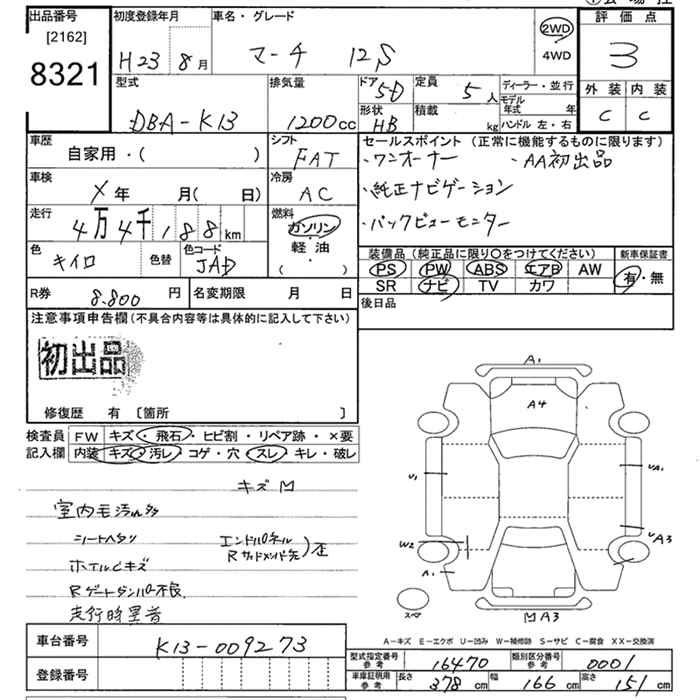 出品番号
[2162]
8321
初度登録年月
H23 8月
車名・グレード
マーチ 12S
2WD
4WD
評価点
3
外装 内装
C C
型式
DBA-K13
排気量
1200cc
ドア
5D
形状
HB
定員
5人
積載
kg
ディーラー・並行
モデル年式 年
ハンドル 左・右
車歴
自家用・( )
シフト
FAT
車検
X年 月( 日)
冷房
AC
走行
4万4千188km
燃料
ガソリン
軽・油
( ・ )
色
キイロ
色替
色コード
JAD
R券 8.800 円
名変期限 月 日
セールスポイント (正常に機能するものに限ります)
・ワンオーナー ・AA初出品
・純正ナビゲーション
・バックビューモニター
装備品(純正品に限り〇をつけてください)
新車保証書
PS PW ABS エアB AW
SR ナビ TV カワ
有・無
後日品
注意事項申告欄(不具合内容等は具体的に記入して下さい)
初出品
修復歴 有 [箇所 ]
検査員記入欄
FW キズ・飛石・ヒビ割・リペア跡・×要
内装 キズ・汚レ・コゲ・穴・スレ・キレ・破レ
室内毛汚れ
シートヘタリ
ホイルキズ
Rゲートダンパー不良
走行時異音
エンドパネル
Rサイドメンバー先
歪
A1
A4
U1
UA1
W2
UA3
A1
スペア
A3
A-キズ E-エクボ U-凹み W-補修跡 S-サビ C-腐食 XX-交換済
車台番号
K13-009273
登録番号
型式指定番号
参考
16470
類別区分番号
参考
0001
車庫証明用
参考
長さ 378 cm 幅 166 cm 高さ 151 cm